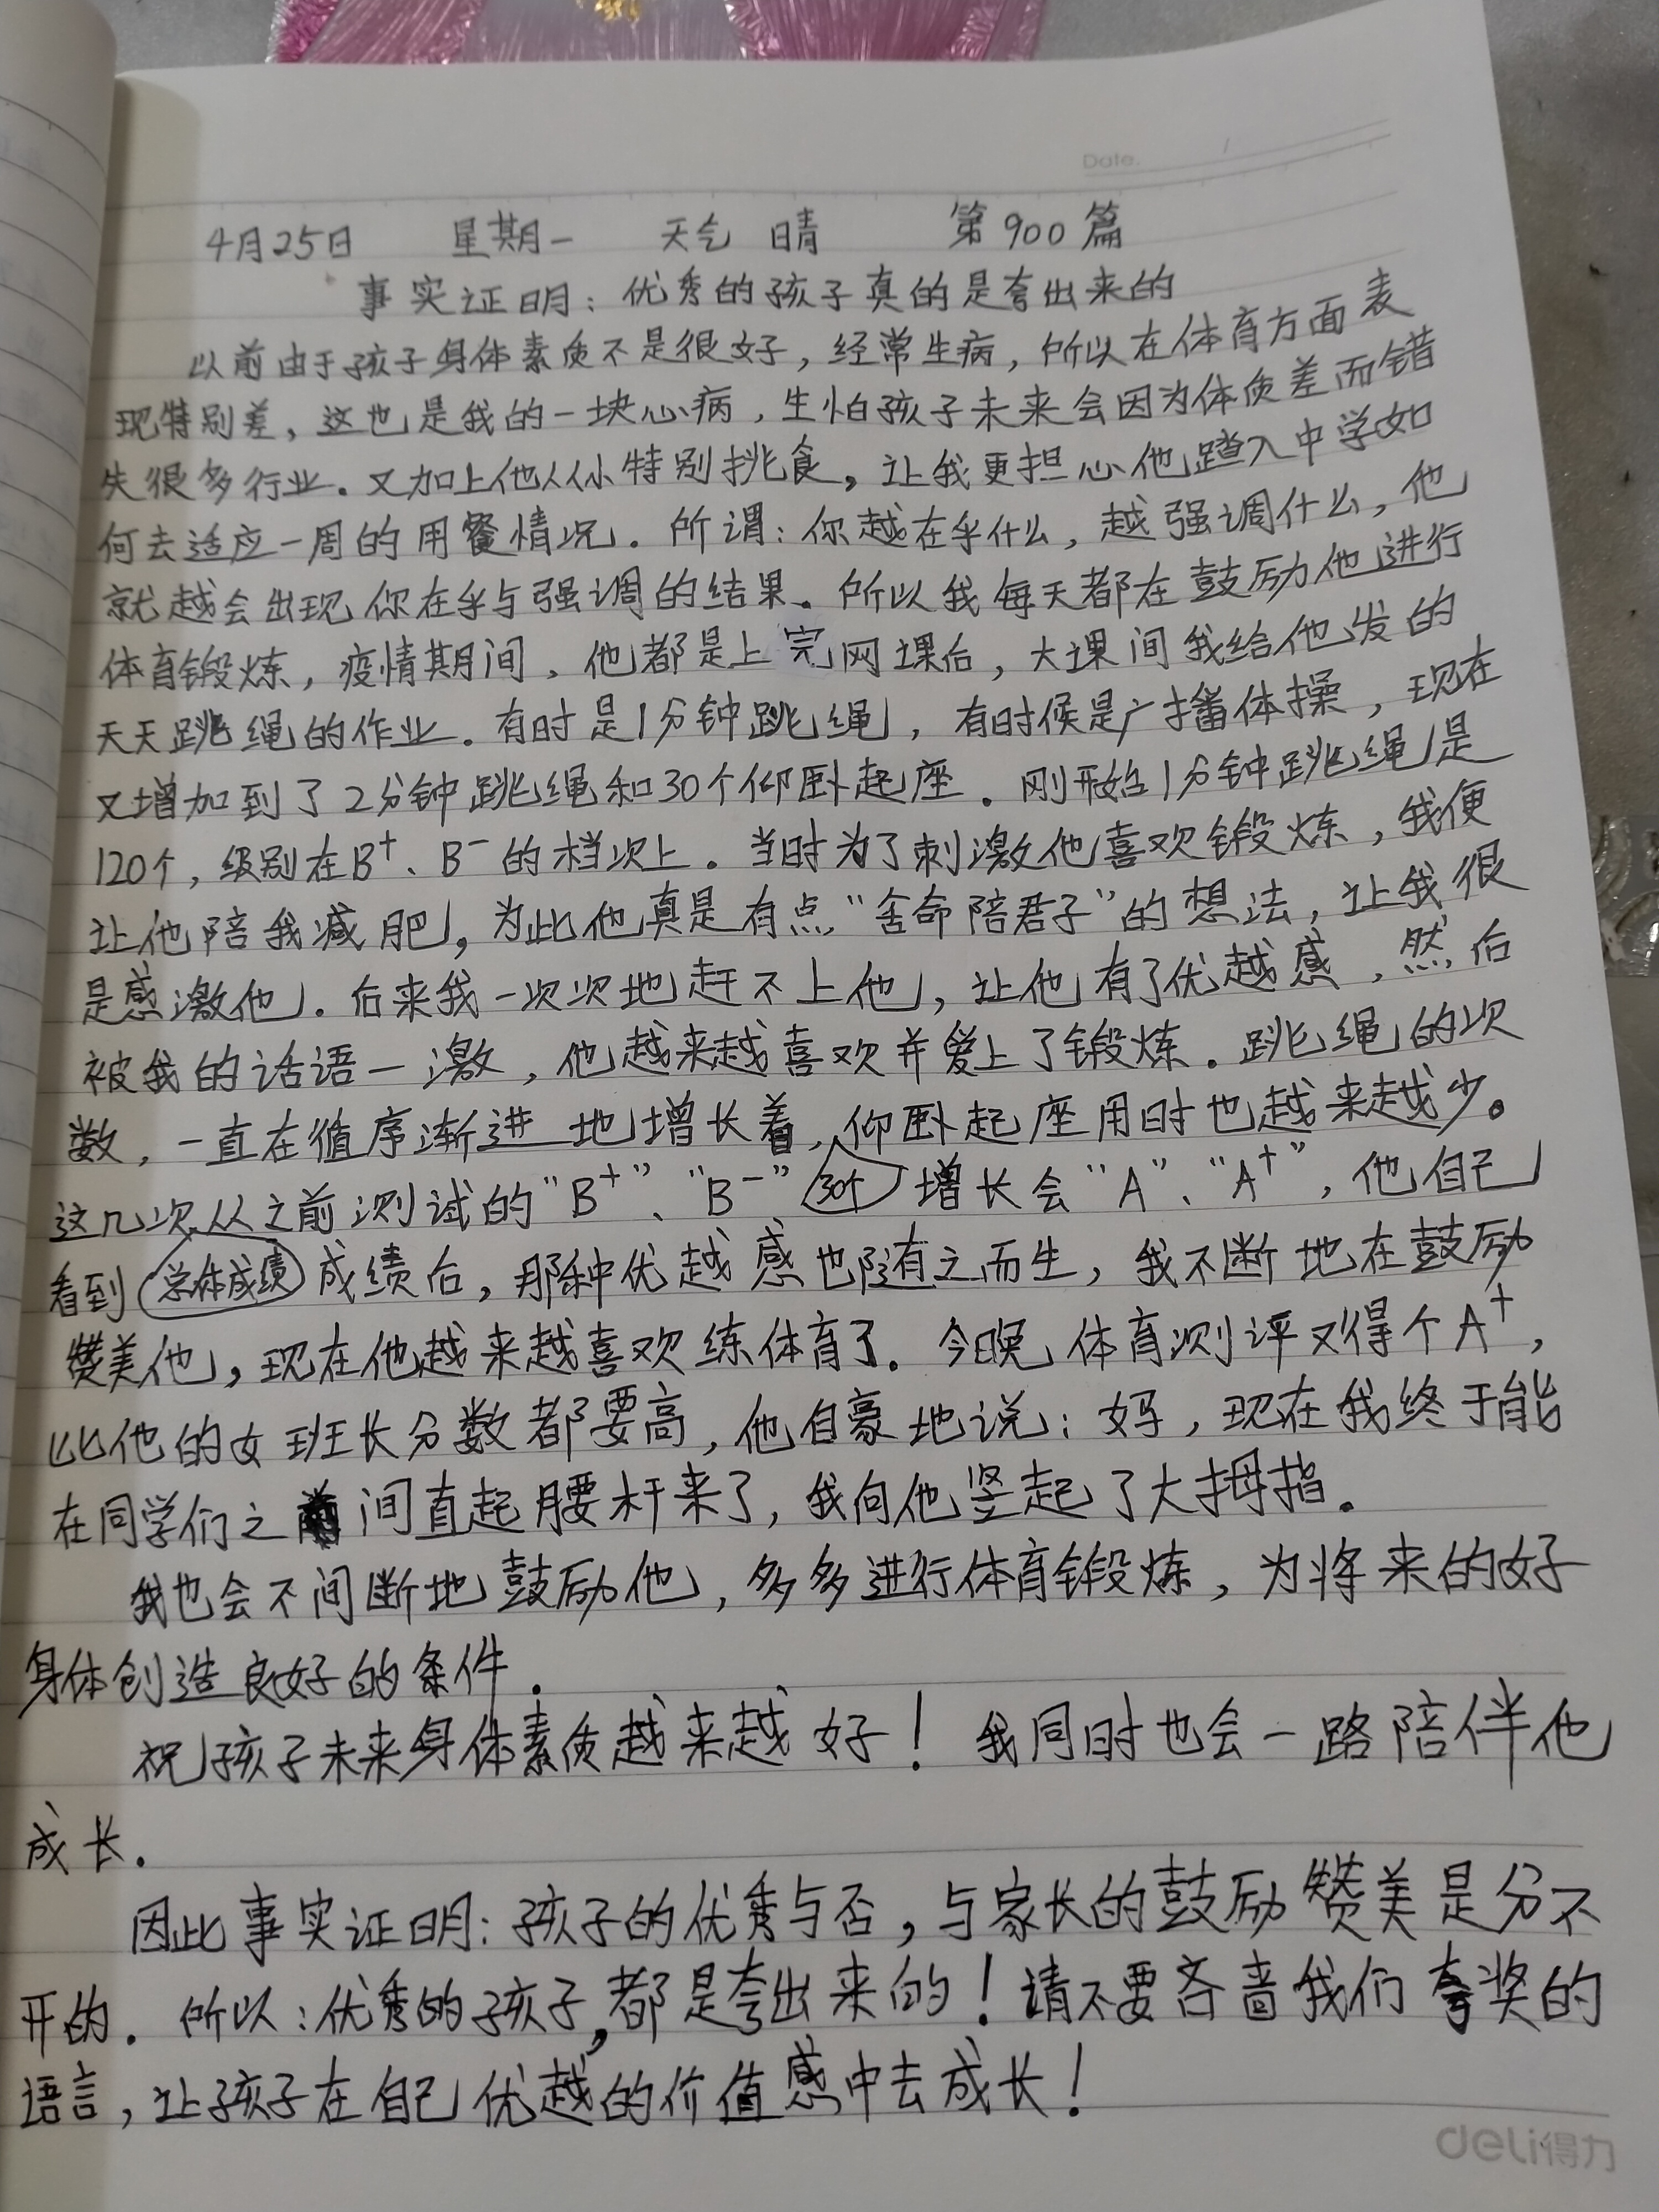 Date.
4月25日 星期一 天气 晴 第900篇
事实证明：优秀的孩子真的是夸出来的
以前由于孩子身体素质不是很好，经常生病，所以在体育方面表
现特别差，这也是我的一块心病，生怕孩子未来会因为体质差而错
失很多行业。又加上他从小特别挑食，让我更担心他踏入中学如
何去适应一周的用餐情况。所谓：你越在乎什么，越强调什么，他
就越会出现你在乎与强调的结果。所以我每天都在鼓励他进行
体育锻炼，疫情期间，他都是上完网课后，大课间我给他发的
天天跳绳的作业。有时是1分钟跳绳，有时候是广播体操，现在
又增加到了2分钟跳绳和30个仰卧起座。刚开始1分钟跳绳是
120个，级别在B+、B-的档次上。当时为了刺激他喜欢锻炼，我便
让他陪我减肥，为此他真是有点“舍命陪君子”的想法，让我很
是感激他。后来我一次次地赶不上他，让他有了优越感，然后
被我的话语一激，他越来越喜欢并爱上了锻炼。跳绳的次
数，一直在循序渐进地增长着，仰卧起座用时也越来越少。
这几次从之前测试的“B+”、“B-”30个增长会“A”、“A+”，他自己
看到学体成绩成绩后，那种优越感也随之而生，我不断地在鼓励
赞美他，现在他越来越喜欢练体育了。今晚体育测评又得个A+，
比他的女班长分数都要高，他自豪地说：妈，现在我终于能
在同学们之间直起腰杆来了，我向他竖起了大拇指。
我也会不间断地鼓励他，多多进行体育锻炼，为将来的好
身体创造良好的条件.
祝孩子未来身体素质越来越好！我同时也会一路陪伴他
成长.
因此事实证明：孩子的优秀与否，与家长的鼓励赞美是分不
开的. 所以：优秀的孩子，都是夸出来的！请不要吝啬我们夸奖的
语言，让孩子在自己优越的价值感中去成长！
deli得力